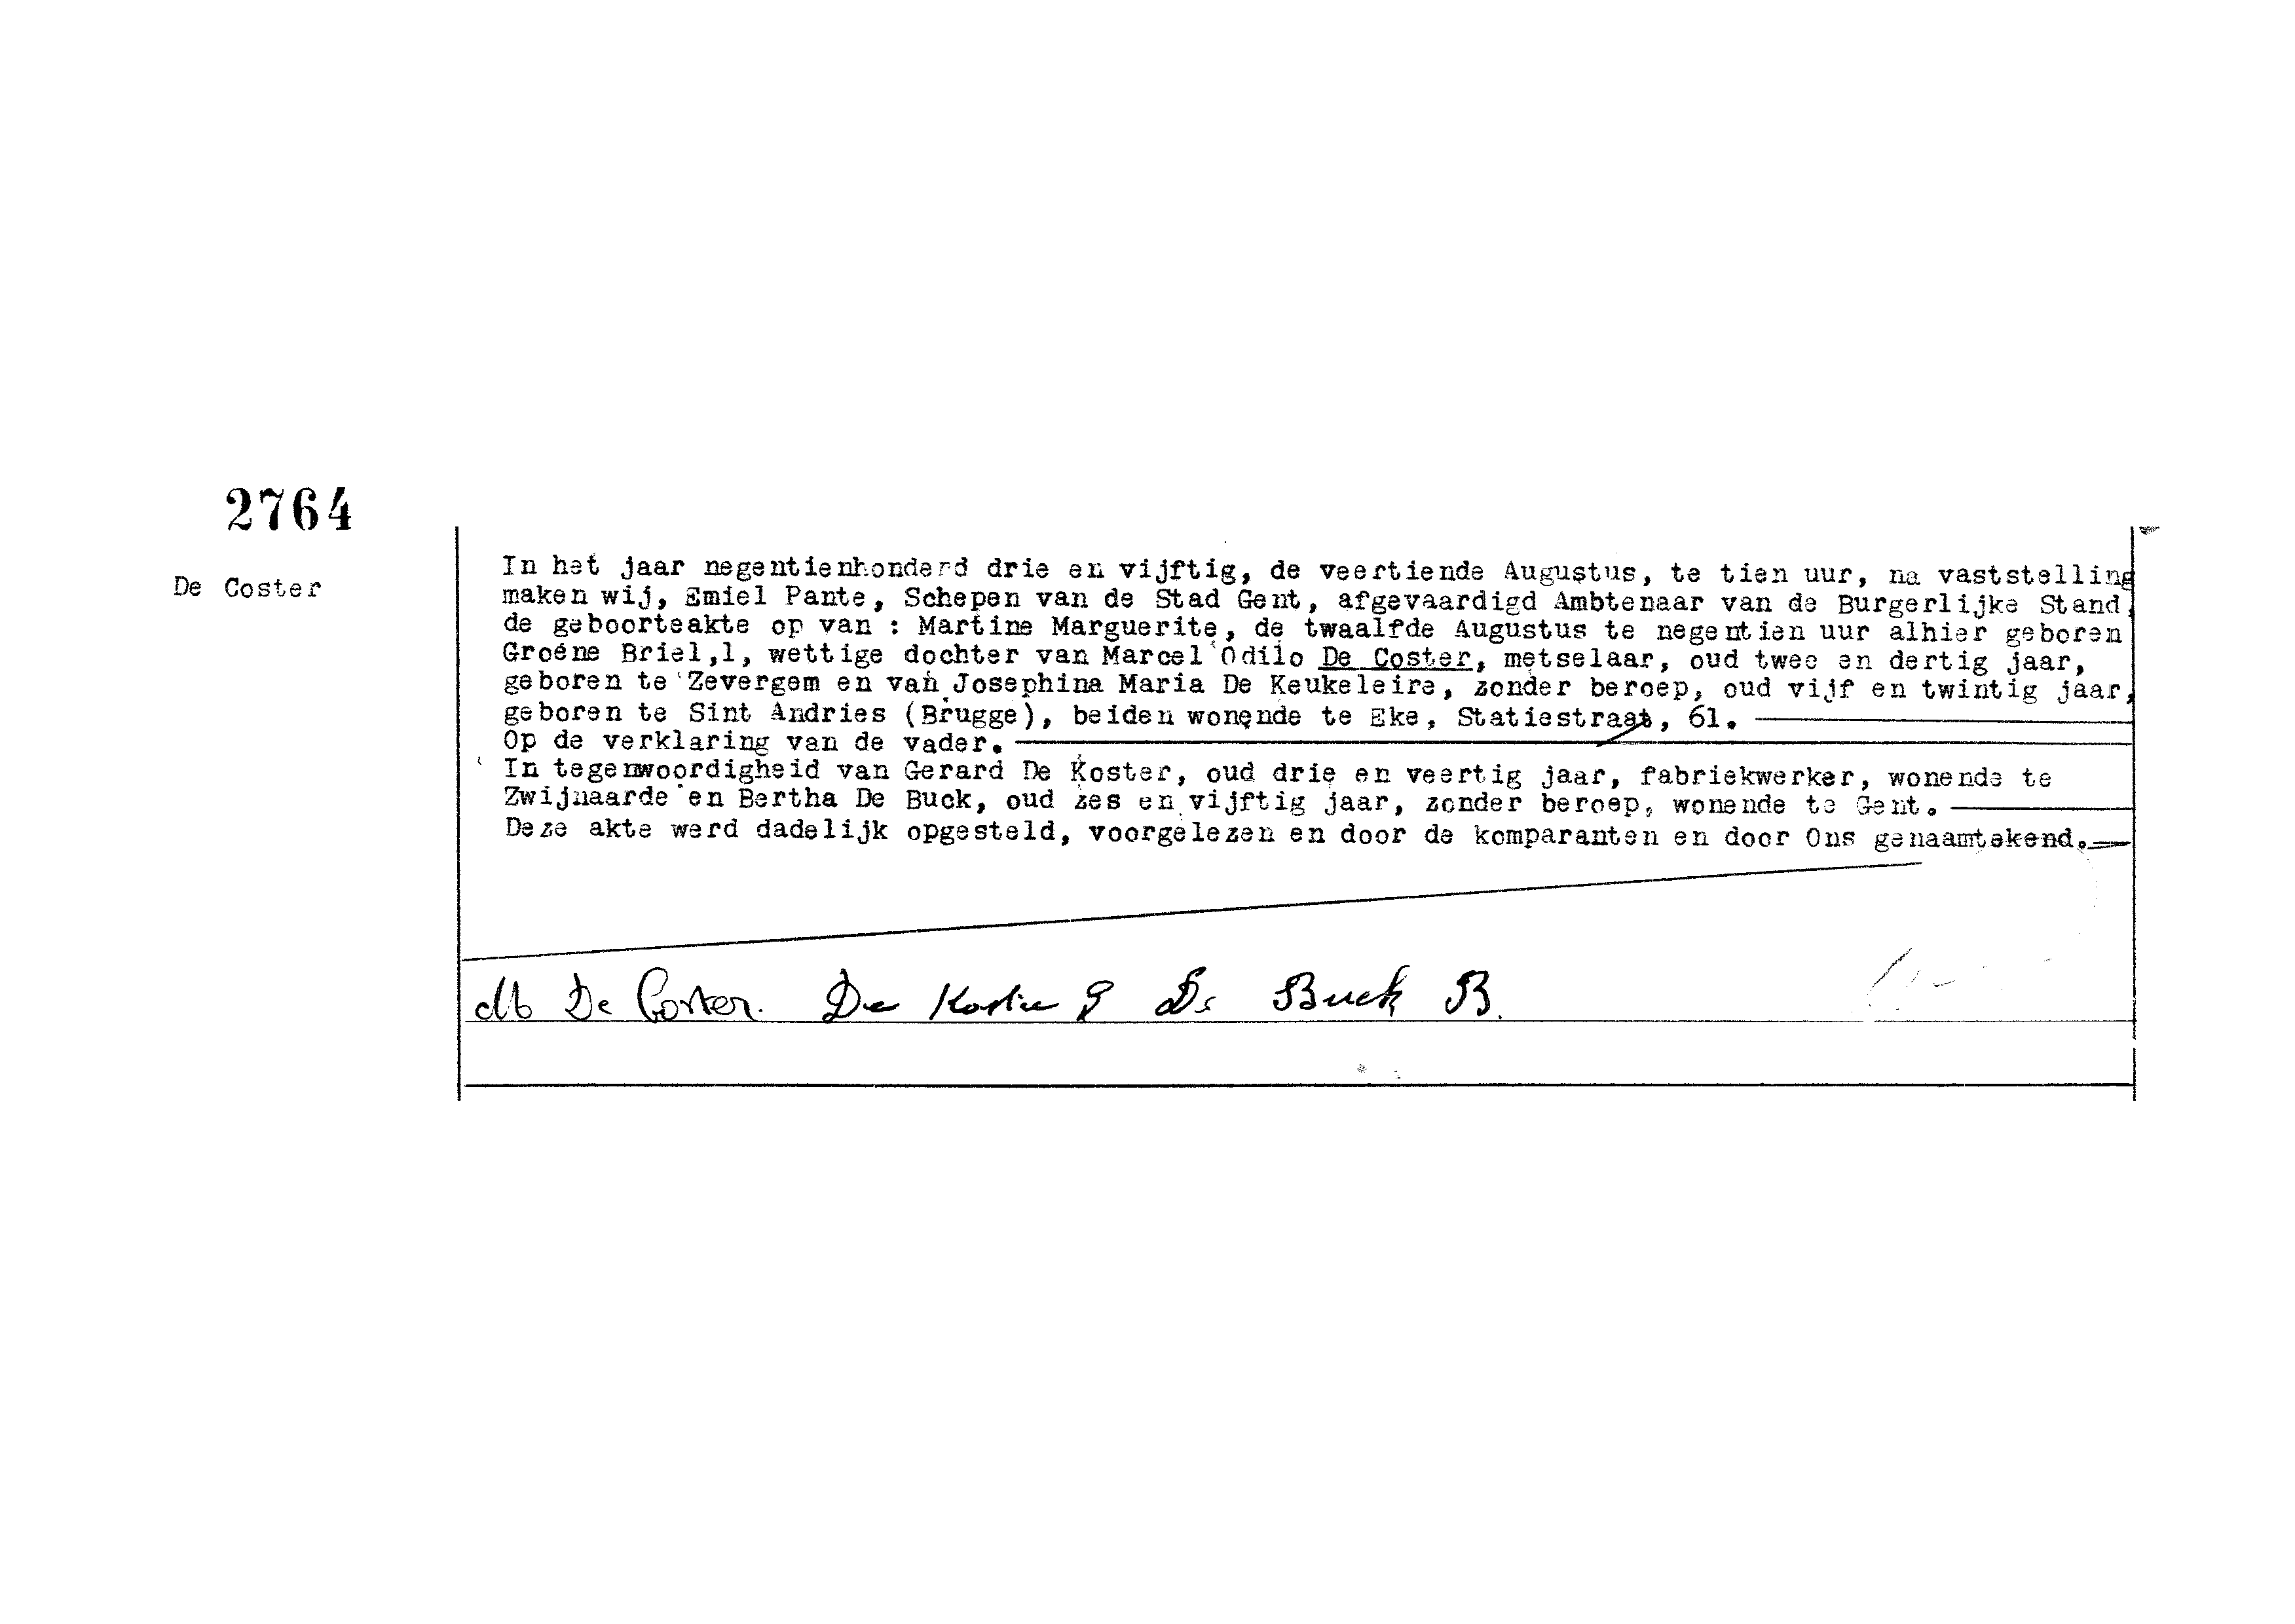 2764
De Coster
In het jaar negentienhonderd drie en vijftig, de veertiende Augustus, te tien uur, na vaststelling
maken wij, Emiel Pante, Schepen van de Stad Gent, afgevaardigd Ambtenaar van de Burgerlijke Stand,
de geboorteakte op van : Martine Marguerite, de twaalfde Augustus te negentien uur alhier geboren
Groene Briel,1, wettige dochter van Marcel Odilo De Coster, metselaar, oud twee en dertig jaar,
geboren te Zevergem en van Josephina Maria De Keukeleire, zonder beroep, oud vijf en twintig jaar,
geboren te Sint Andries (Brugge), beiden wonende te Eke, Statiestraat, 61.
Op de verklaring van de vader.
In tegenwoordigheid van Gerard De Koster, oud drie en veertig jaar, fabriekwerker, wonende te
Zwijnaarde en Bertha De Buck, oud zes en vijftig jaar, zonder beroep, wonende te Gent.
Deze akte werd dadelijk opgesteld, voorgelezen en door de komparanten en door Ons genaamtekend.
M De Coster. De Koster G De Buck B.